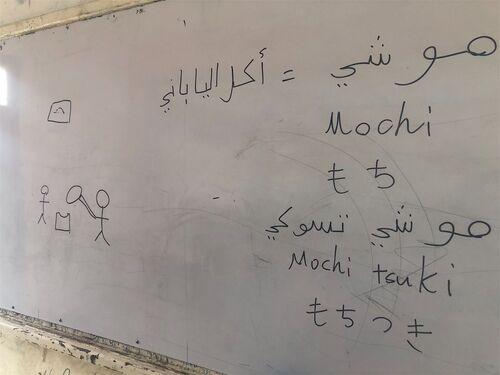 موشي = أكل الياباني
Mochi
もち
موشي تسوكي
Mochi tsuki
もちつき